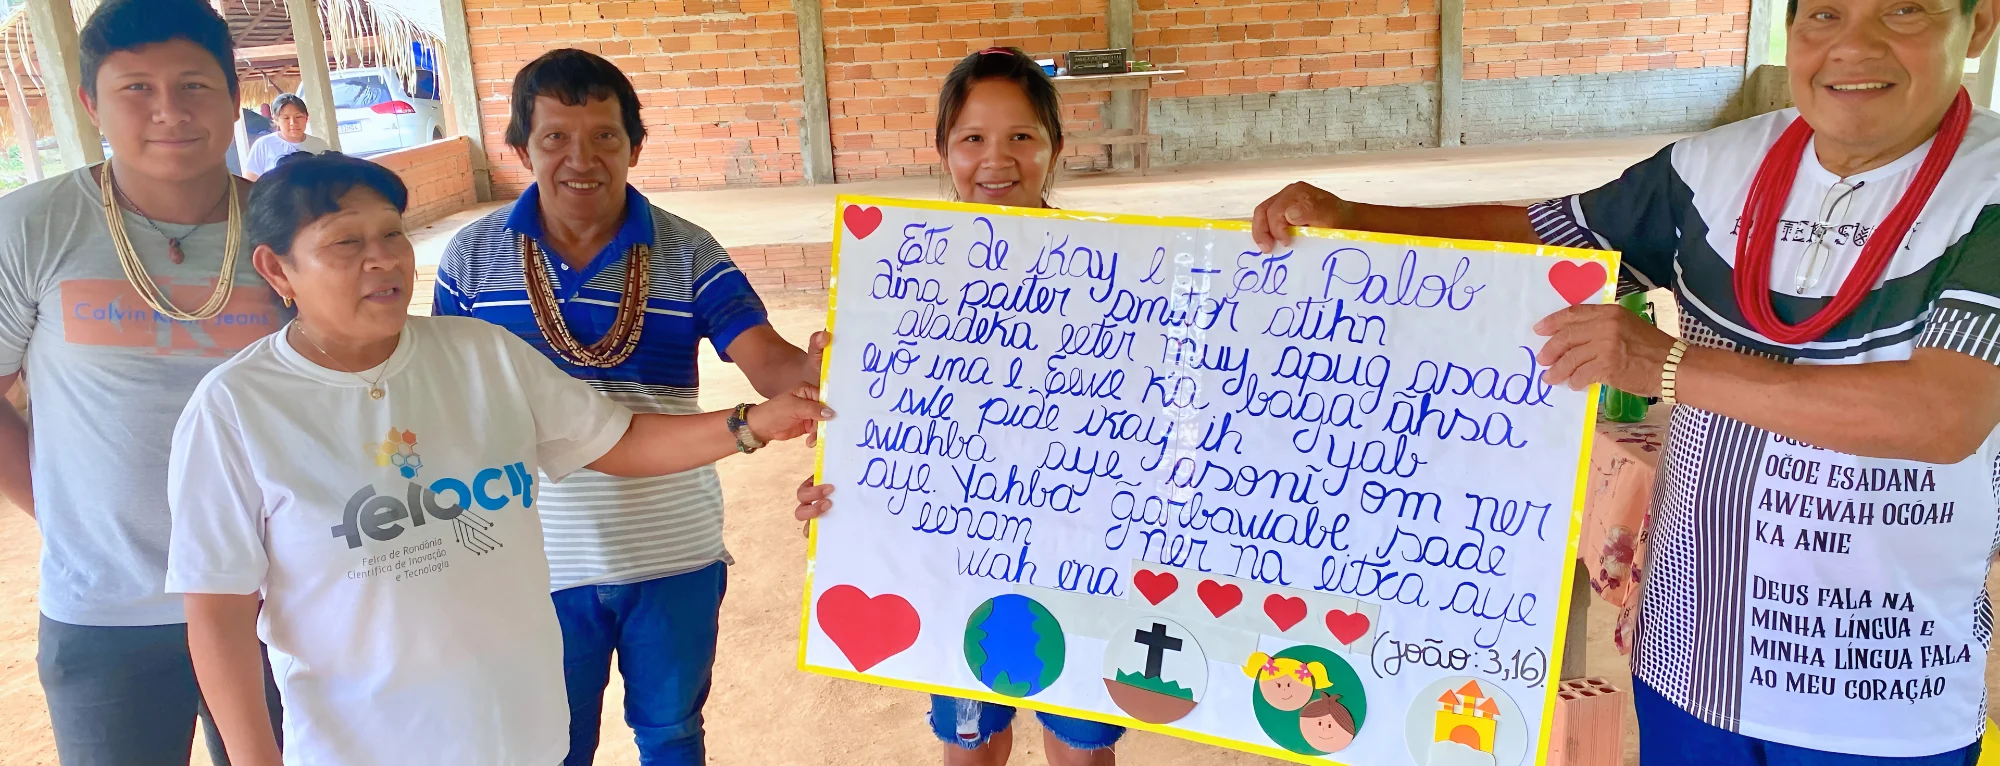 Calvin Klein Jeans
feirocit
Feira de Rondônia
Científica de Inovação
e Tecnologia
Ete de ikay e - Ete Palob
dina paiter amitor atihn
aladeka eeter muy apug asade
eyõ ina e. Eewe ka baga ãhsa
swe pide ikay ih yab
ewahba aye jasonĩ om ner
aye. Yahba g̃arbawabe sade
eenam ner na eitxa aye
wah ena
(João: 3,16)
PAITER SURUY
OG̃OE ESADANÃ
AWEWÃH OGÓAH
KA ANIE
DEUS FALA NA
MINHA LÍNGUA E
MINHA LÍNGUA FALA
AO MEU CORAÇÃO